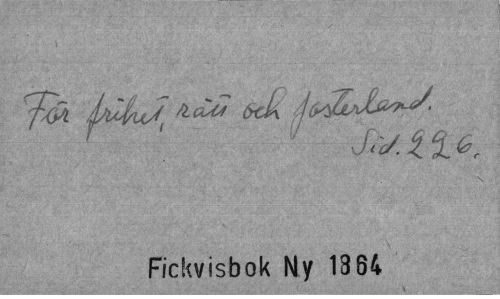 För frihet, rätt och fosterland.
Sid. 226.
Fickvisbok Ny 1864